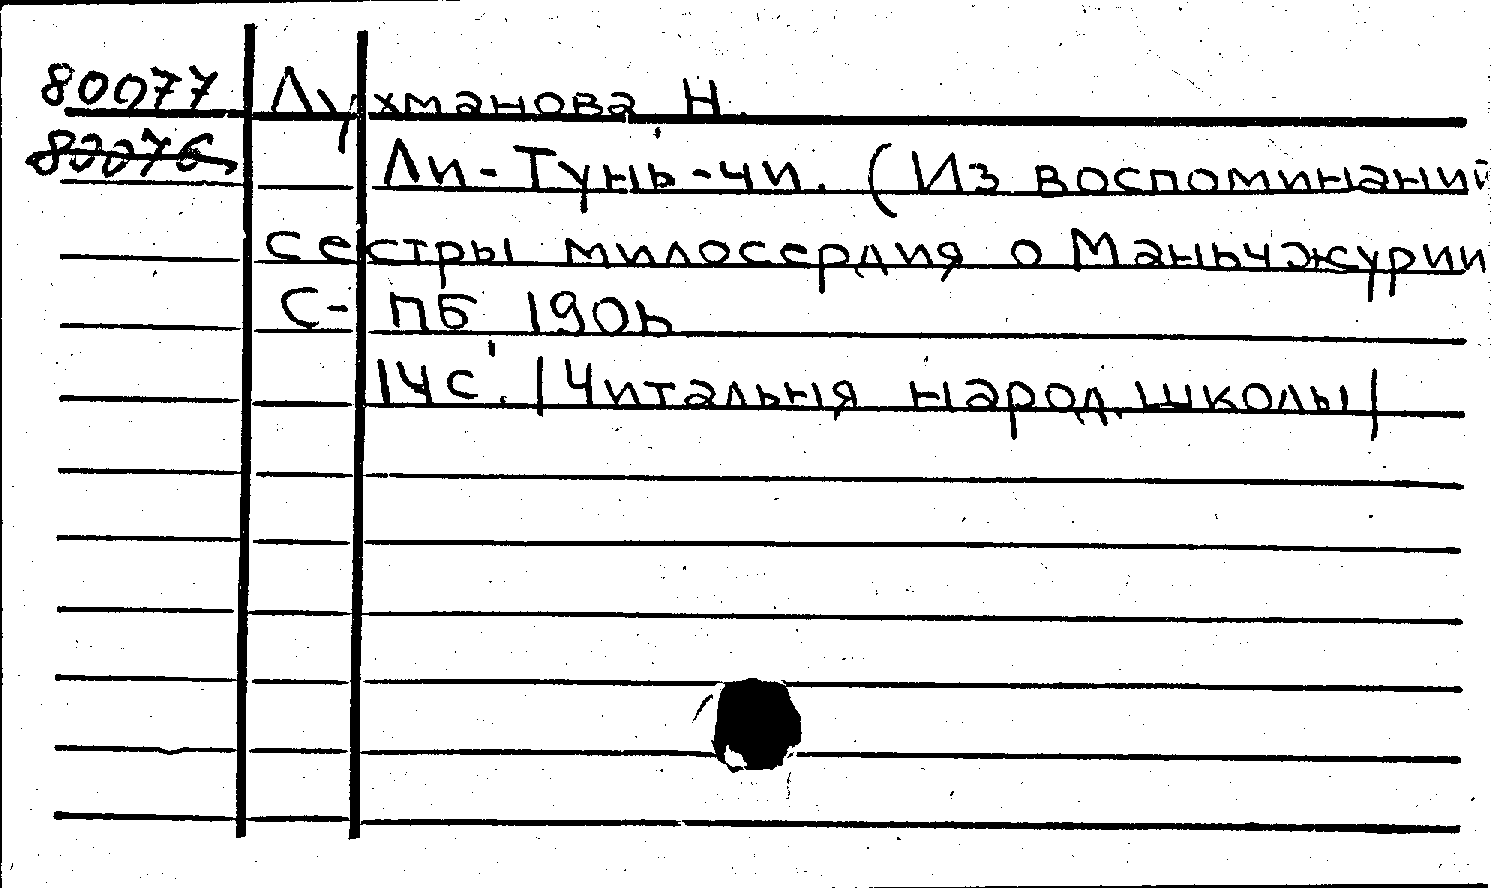 80077 Лухманова Н.
80076 Ли-Тунь-чи. (Из воспоминаний
сестры милосердия о Маньчжурии
С-ПБ 1906
14с. /Читальня народ. школы/